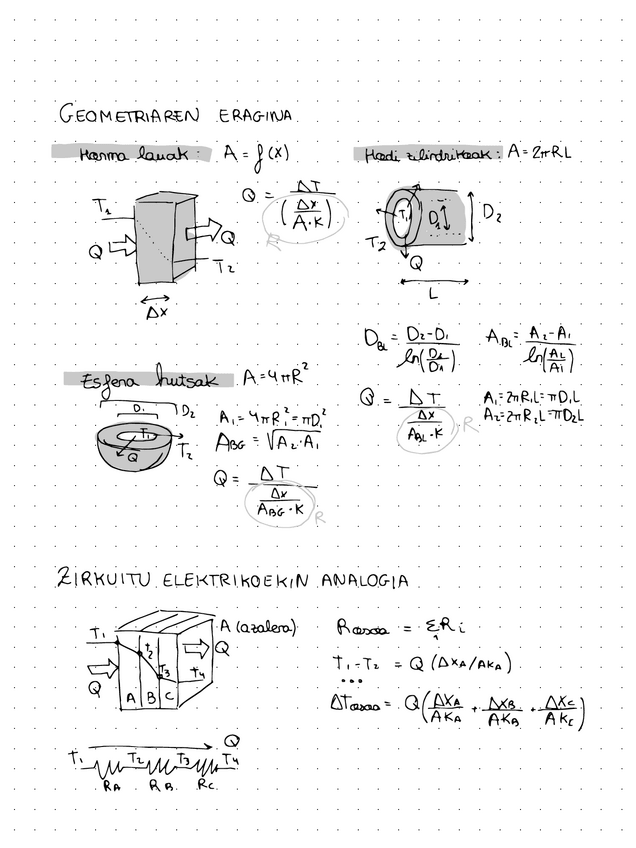 GEOMETRIAREN ERAGINA
Horma lauak: A = f(x)
Q = ΔT / (Δx / A·K)
R
T1
Q
Q
T2
Δx
Hodi zilindrikoak: A = 2πRL
T1
D1
D2
T2
Q
L
D_BL = D2 - D1 / ln(D2/D1)
A_BL = A2 - A1 / ln(A2/A1)
Q = ΔT / (Δx / A_BL·K)
R
A1 = 2πR1L = πD1L
A2 = 2πR2L = πD2L
Esfera hutsak A = 4πR²
D1
D2
T1
T2
Q
A1 = 4πR1² = πD1²
A_BG = √A2·A1
Q = ΔT / (Δx / A_BG·K)
R
ZIRKUITU ELEKTRIKOEKIN ANALOGIA
A (azalera)
T1
T2
T3
T4
Q
Q
A B C
Q
T1 T2 T3 T4
RA RB RC
Rosoa = ΣRi
1
T1-T2 = Q (ΔxA/AKA)
...
ΔTosoa = Q(ΔxA/AKA + ΔxB/AKB + ΔxC/AKC)